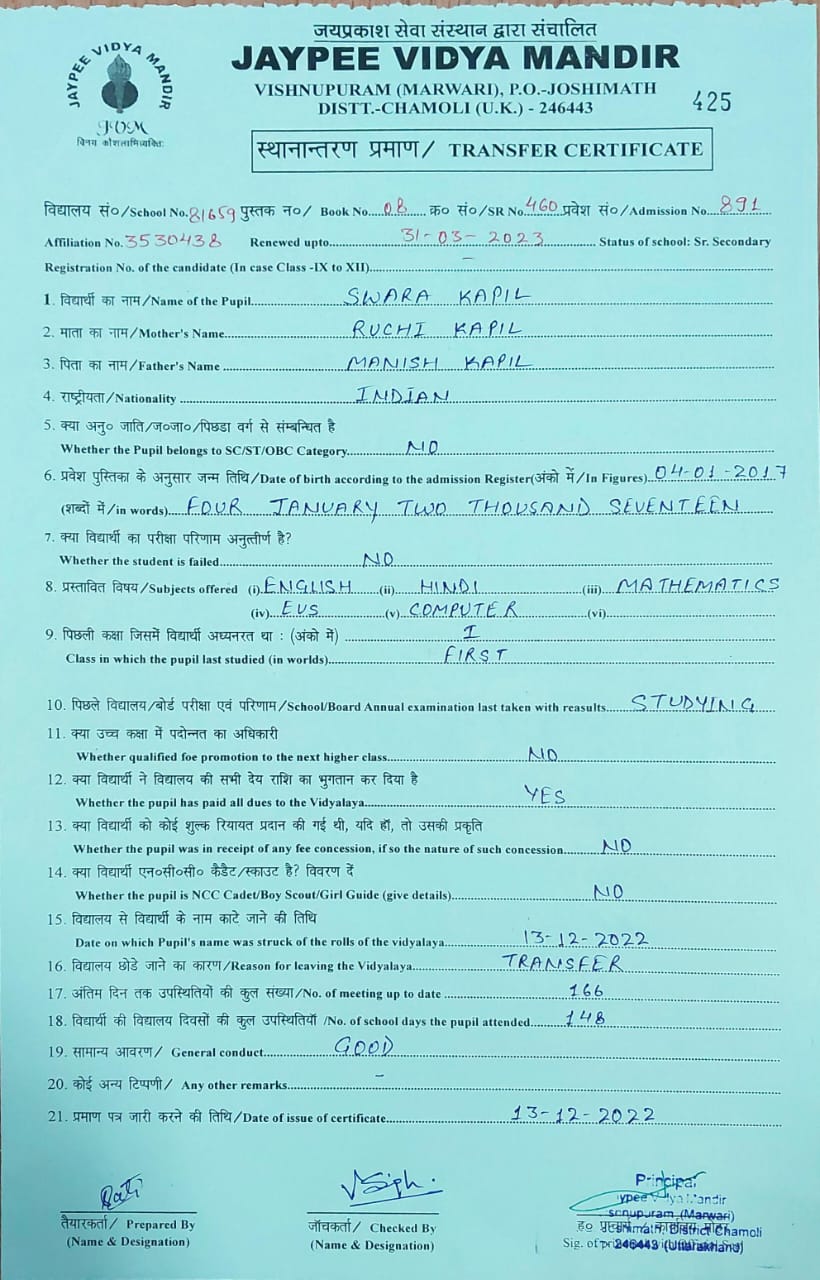 जयप्रकाश सेवा संस्थान द्वारा संचालित
JAYPEE VIDYA MANDIR
JAYPEE VIDYA MANDIR
VISHNUPURAM (MARWARI), P.O.-JOSHIMATH
DISTT.-CHAMOLI (U.K.) - 246443
425
JVM
स्थानान्तरण प्रमाण/ TRANSFER CERTIFICATE
विद्यालय सं०/School No. 81659 पुस्तक न०/ Book No. 08 क्र० सं०/SR No. 460 प्रवेश सं०/Admission No. 891
Affiliation No. 3530438 Renewed upto 31-03-2023 Status of school: Sr. Secondary
Registration No. of the candidate (In case Class -IX to XII) –
1. विद्यार्थी का नाम/Name of the Pupil SWARA KAPIL
2. माता का नाम/Mother's Name RUCHI KAPIL
3. पिता का नाम/Father's Name MANISH KAPIL
4. राष्ट्रीयता/Nationality INDIAN
5. क्या अनु० जाति/ज०जा०/पिछडा वर्ग से संम्बन्धित है
Whether the Pupil belongs to SC/ST/OBC Category NO
6. प्रवेश पुस्तिका के अनुसार जन्म तिथि/Date of birth according to the admission Register(अंको में/In Figures) 04-01-2017
(शब्दों में/in words) FOUR JANUARY TWO THOUSAND SEVENTEEN
7. क्या विद्यार्थी का परीक्षा परिणाम अनुत्तीर्ण है?
Whether the student is failed NO
8. प्रस्तावित विषय/Subjects offered (i) ENGLISH (ii) HINDI (iii) MATHEMATICS
(iv) EVS (v) COMPUTER (vi)
9. पिछली कक्षा जिसमें विद्यार्थी अध्यनरत था : (अंको में) I
Class in which the pupil last studied (in worlds) FIRST
10. पिछले विद्यालय/बोर्ड परीक्षा एवं परिणाम/School/Board Annual examination last taken with reasults STUDYING
11. क्या उच्च कक्षा में पदोन्नत का अधिकारी
Whether qualified foe promotion to the next higher class NO
12. क्या विद्यार्थी ने विद्यालय की सभी देय राशि का भुगतान कर दिया है
Whether the pupil has paid all dues to the Vidyalaya YES
13. क्या विद्यार्थी को कोई शुल्क रियायत प्रदान की गई थी, यदि हॉं, तो उसकी प्रकृति
Whether the pupil was in receipt of any fee concession, if so the nature of such concession NO
14. क्या विद्यार्थी एन०सी०सी० कैडैट/स्काउट है? विवरण दें
Whether the pupil is NCC Cadet/Boy Scout/Girl Guide (give details) NO
15. विद्यालय से विद्यार्थी के नाम काटे जाने की तिथि
Date on which Pupil's name was struck of the rolls of the vidyalaya 13-12-2022
16. विद्यालय छोडे जाने का कारण/Reason for leaving the Vidyalaya TRANSFER
17. अंतिम दिन तक उपस्थितियों की कुल संख्या/No. of meeting up to date 166
18. विद्यार्थी की विद्यालय दिवसों की कुल उपस्थितियॉं /No. of school days the pupil attended 148
19. सामान्य आवरण/ General conduct GOOD
20. कोई अन्य टिप्पणी/ Any other remarks –
21. प्रमाण पत्र जारी करने की तिथि/Date of issue of certificate 13-12-2022
तैयारकर्ता/ Prepared By
(Name & Designation)
जॉचकर्ता/ Checked By
(Name & Designation)
Principal
Mandir
(Marwari)
District Chamoli
246443 (Uttarakhand)
Sig. of